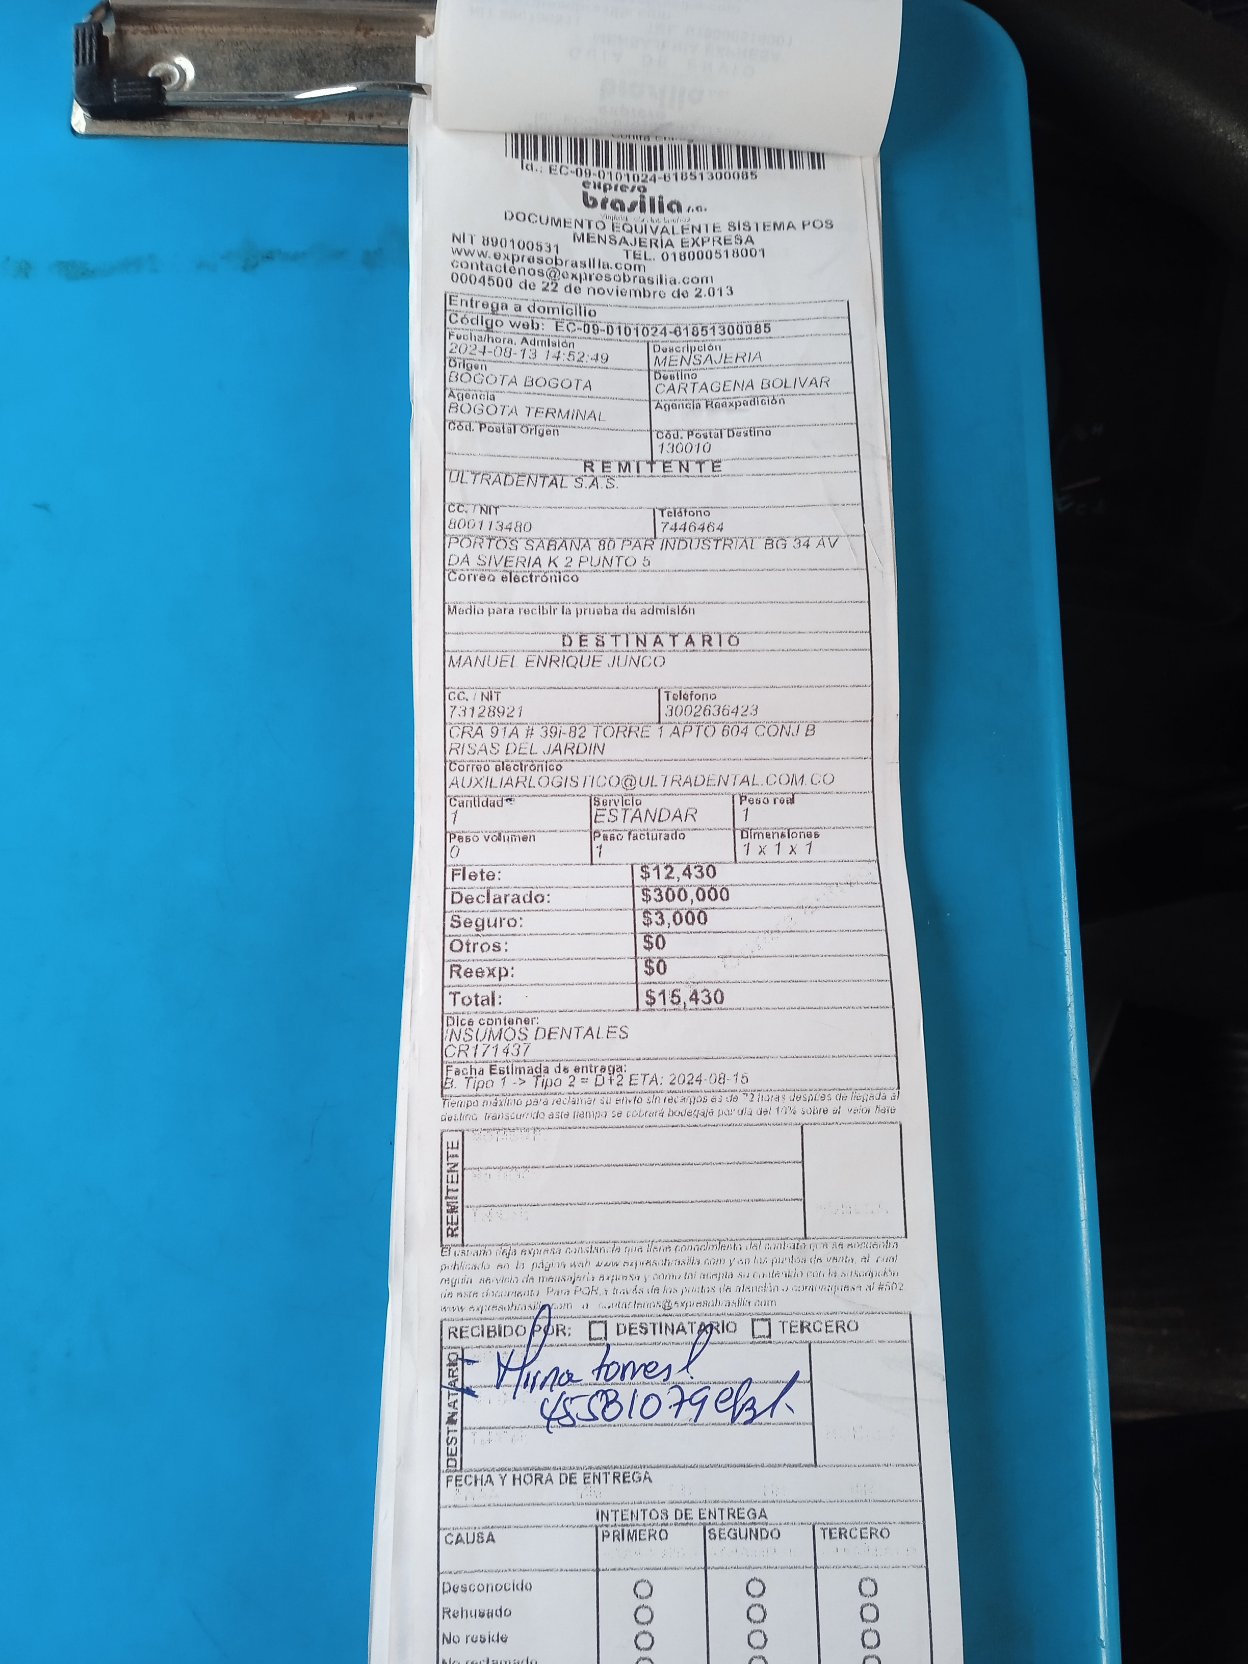 Id.: EC-09-0101024-61851300085
expreso
brasilia s.a.
DOCUMENTO EQUIVALENTE SISTEMA POS
MENSAJERÍA EXPRESA
NIT 890100531 TEL. 018000518001
www.expresobrasilia.com
contactenos@expresobrasilia.com
0004500 de 22 de noviembre de 2.013
Entrega a domicilio
Código web: EC-09-0101024-61851300085
Fecha/hora. Admisión Descripción
2024-08-13 14:52:49 MENSAJERIA
Origen Destino
BOGOTA BOGOTA CARTAGENA BOLIVAR
Agencia Agencia Reexpedición
BOGOTA TERMINAL
Cód. Postal Origen Cód. Postal Destino
130010
REMITENTE
ULTRADENTAL S.A.S.
CC. / NIT Teléfono
800113480 7446464
PORTOS SABANA 80 PAR INDUSTRIAL BG 34 AV
DA SIVERIA K 2 PUNTO 5
Correo electrónico
Medio para recibir la prueba de admisión
DESTINATARIO
MANUEL ENRIQUE JUNCO
CC. / NIT Teléfono
73128921 3002636423
CRA 91A # 39i-82 TORRE 1 APTO 604 CONJ B
RISAS DEL JARDIN
Correo electrónico
AUXILIARLOGISTICO@ULTRADENTAL.COM.CO
Cantidad Servicio Peso real
1 ESTANDAR 1
Peso volumen Peso facturado Dimensiones
0 1 1 x 1 x 1
Flete: $12,430
Declarado: $300,000
Seguro: $3,000
Otros: $0
Reexp: $0
Total: $15,430
Dice contener:
INSUMOS DENTALES
CR171437
Fecha Estimada de entrega:
B. Tipo 1 -> Tipo 2 = D+2 ETA: 2024-08-15
Tiempo máximo para reclamar su envío sin recargos es de 72 horas después de llegada al
destino, transcurrido este tiempo se cobrará bodegaje por día del 10% sobre el valor flete
REMITENTE
El usuario deja expresa constancia que tiene conocimiento del contrato que se encuentra
publicado en la página web www.expresobrasilia.com y en los puntos de venta, el cual
regula servicio de mensajería expresa y como tal acepta su contenido con la suscripción
de este documento. Para PQR, a través de los puntos de atención o comuníquese al #502
www.expresobrasilia.com o contactenos@expresobrasilia.com
RECIBIDO POR: DESTINATARIO TERCERO
DESTINATARIO
torres
45581079
FECHA Y HORA DE ENTREGA
INTENTOS DE ENTREGA
CAUSA PRIMERO SEGUNDO TERCERO
Desconocido
Rehusado
No reside
No reclamado